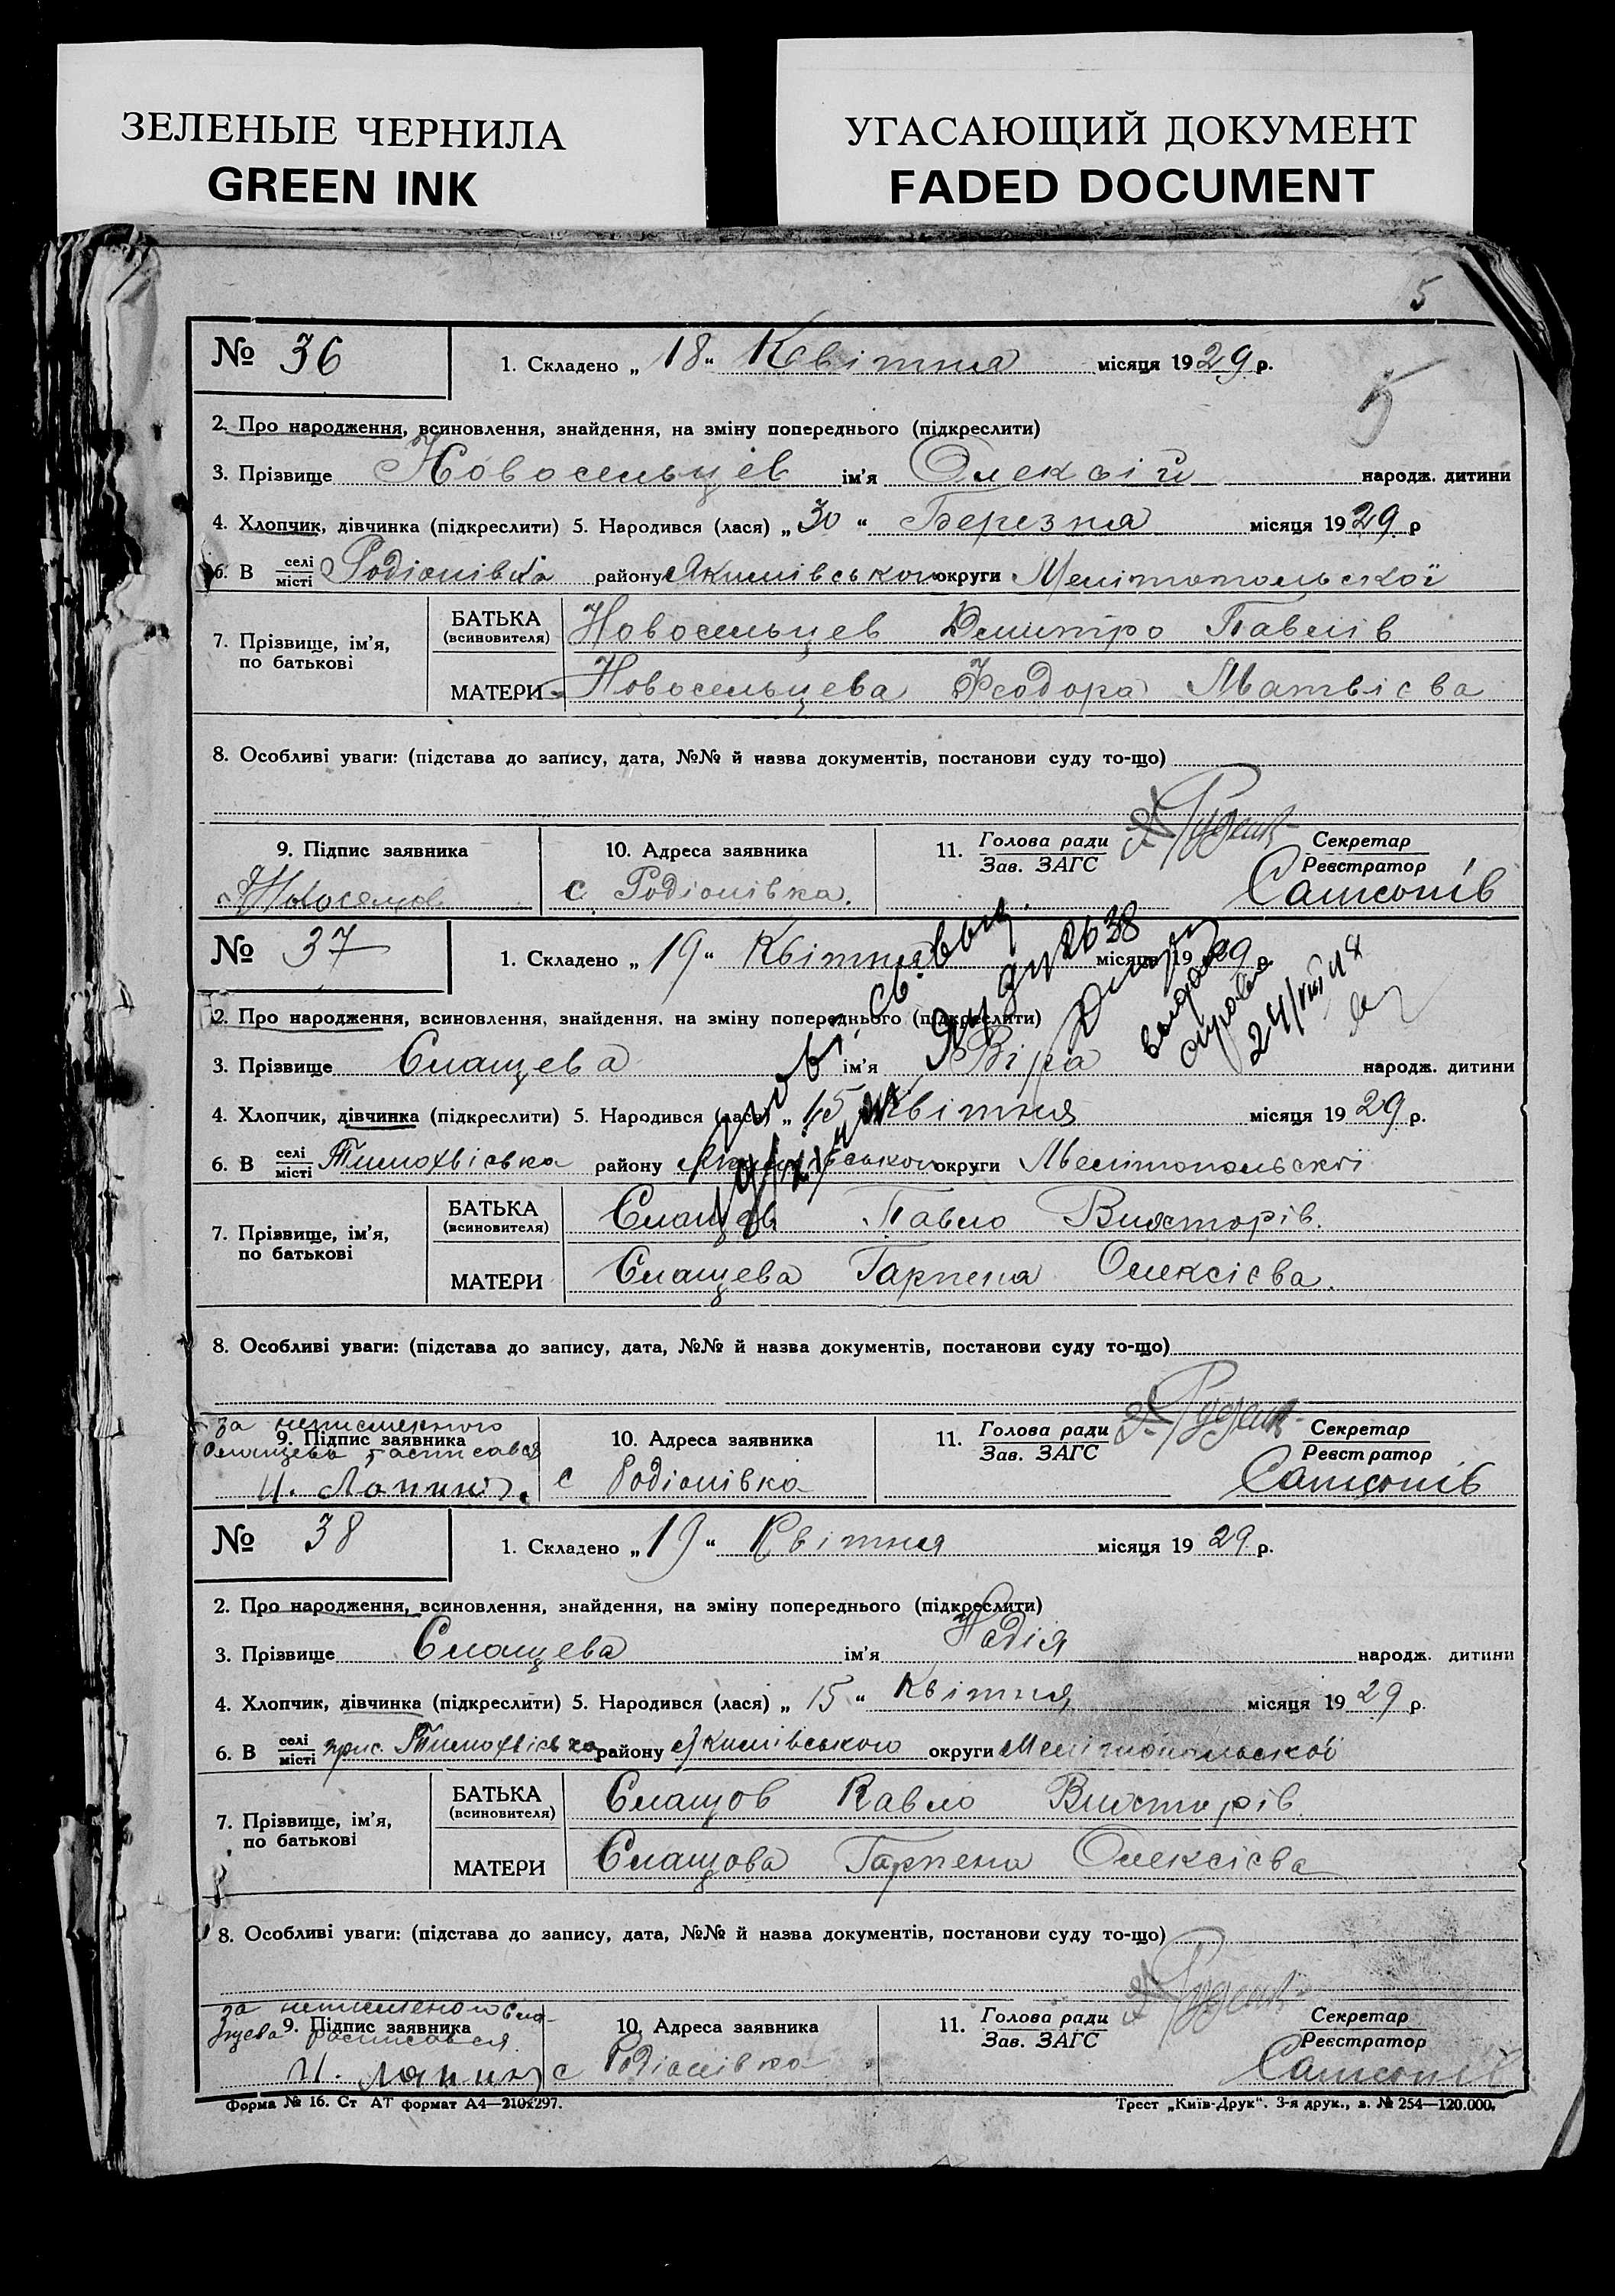 ЗЕЛЕНЫЕ ЧЕРНИЛА
GREEN INK
УГАСАЮЩИЙ ДОКУМЕНТ
FADED DOCUMENT
5
№ 36 1. Складено „ 18 “ Квітня місяця 1929 р.
5
2. Про народження, всиновлення, знайдення, на зміну попереднього (підкреслити)
3. Прізвище Новосельцев ім'я Олексій народж. дитини
4. Хлопчик, дівчинка (підкреслити) 5. Народився (лася) „ 30 “ Березня місяця 1929 р
6. В селі місті Родіонівка району Якимівського округи Мелітопольської
7. Прізвище, ім'я, по батькові
БАТЬКА (всиновителя) Новосельцев Демитро Павлів
МАТЕРИ Новосельцева Феодора Матвієва
8. Особливі уваги: (підстава до запису, дата, №№ й назва документів, постанови суду то-що)
9. Підпис заявника 10. Адреса заявника 11. Голова ради Зав. ЗАГС Секретар Реєстратор
с. Родіонівка. Самсонів
№ 37 1. Складено „ 19 “ Квітня місяця 1929
2. Про народження, всиновлення, знайдення, на зміну попереднього (підкреслити)
24/VIII 48
3. Прізвище Слащева ім'я Віра народж. дитини
4. Хлопчик, дівчинка (підкреслити) 5. Народився (лася) „ 15 Квітня місяця 1929 р.
6. В селі місті Тимохвієвка району Якимівського округи Мелітопольскої
7. Прізвище, ім'я, по батькові
БАТЬКА (всиновителя) Слащев Павло Вікторів.
МАТЕРИ Слащева Гарпена Олексієва.
8. Особливі уваги: (підстава до запису, дата, №№ й назва документів, постанови суду то-що)
за неписменого
9. Підпис заявника 10. Адреса заявника 11. Голова ради Зав. ЗАГС Секретар Реєстратор
Слащева росписався
И. Лапин с Родіонівка Самсонів
№ 38 1. Складено „ 19 “ Квітня місяця 1929 р.
2. Про народження, всиновлення, знайдення, на зміну попереднього (підкреслити)
3. Прізвище Слащева ім'я Надія народж. дитини
4. Хлопчик, дівчинка (підкреслити) 5. Народився (лася) „ 15 “ Квітня місяця 1929 р.
6. В селі місті прис. Тимохвієвка району Якимівського округи Мелітопольської
7. Прізвище, ім'я, по батькові
БАТЬКА (всиновителя) Слащов Павло Вікторів
МАТЕРИ Слащова Гарпена Олексієва
8. Особливі уваги: (підстава до запису, дата, №№ й назва документів, постанови суду то-що)
за неписменого Сла-
9. Підпис заявника 10. Адреса заявника 11. Голова ради Зав. ЗАГС Секретар Реєстратор
щева росписався.
И. Лапин с Родіонівка Самсонів
Форма № 16. Ст АТ формат А4—210х297. Трест „Київ-Друк“. 3-я друк., з. № 254—120.000.